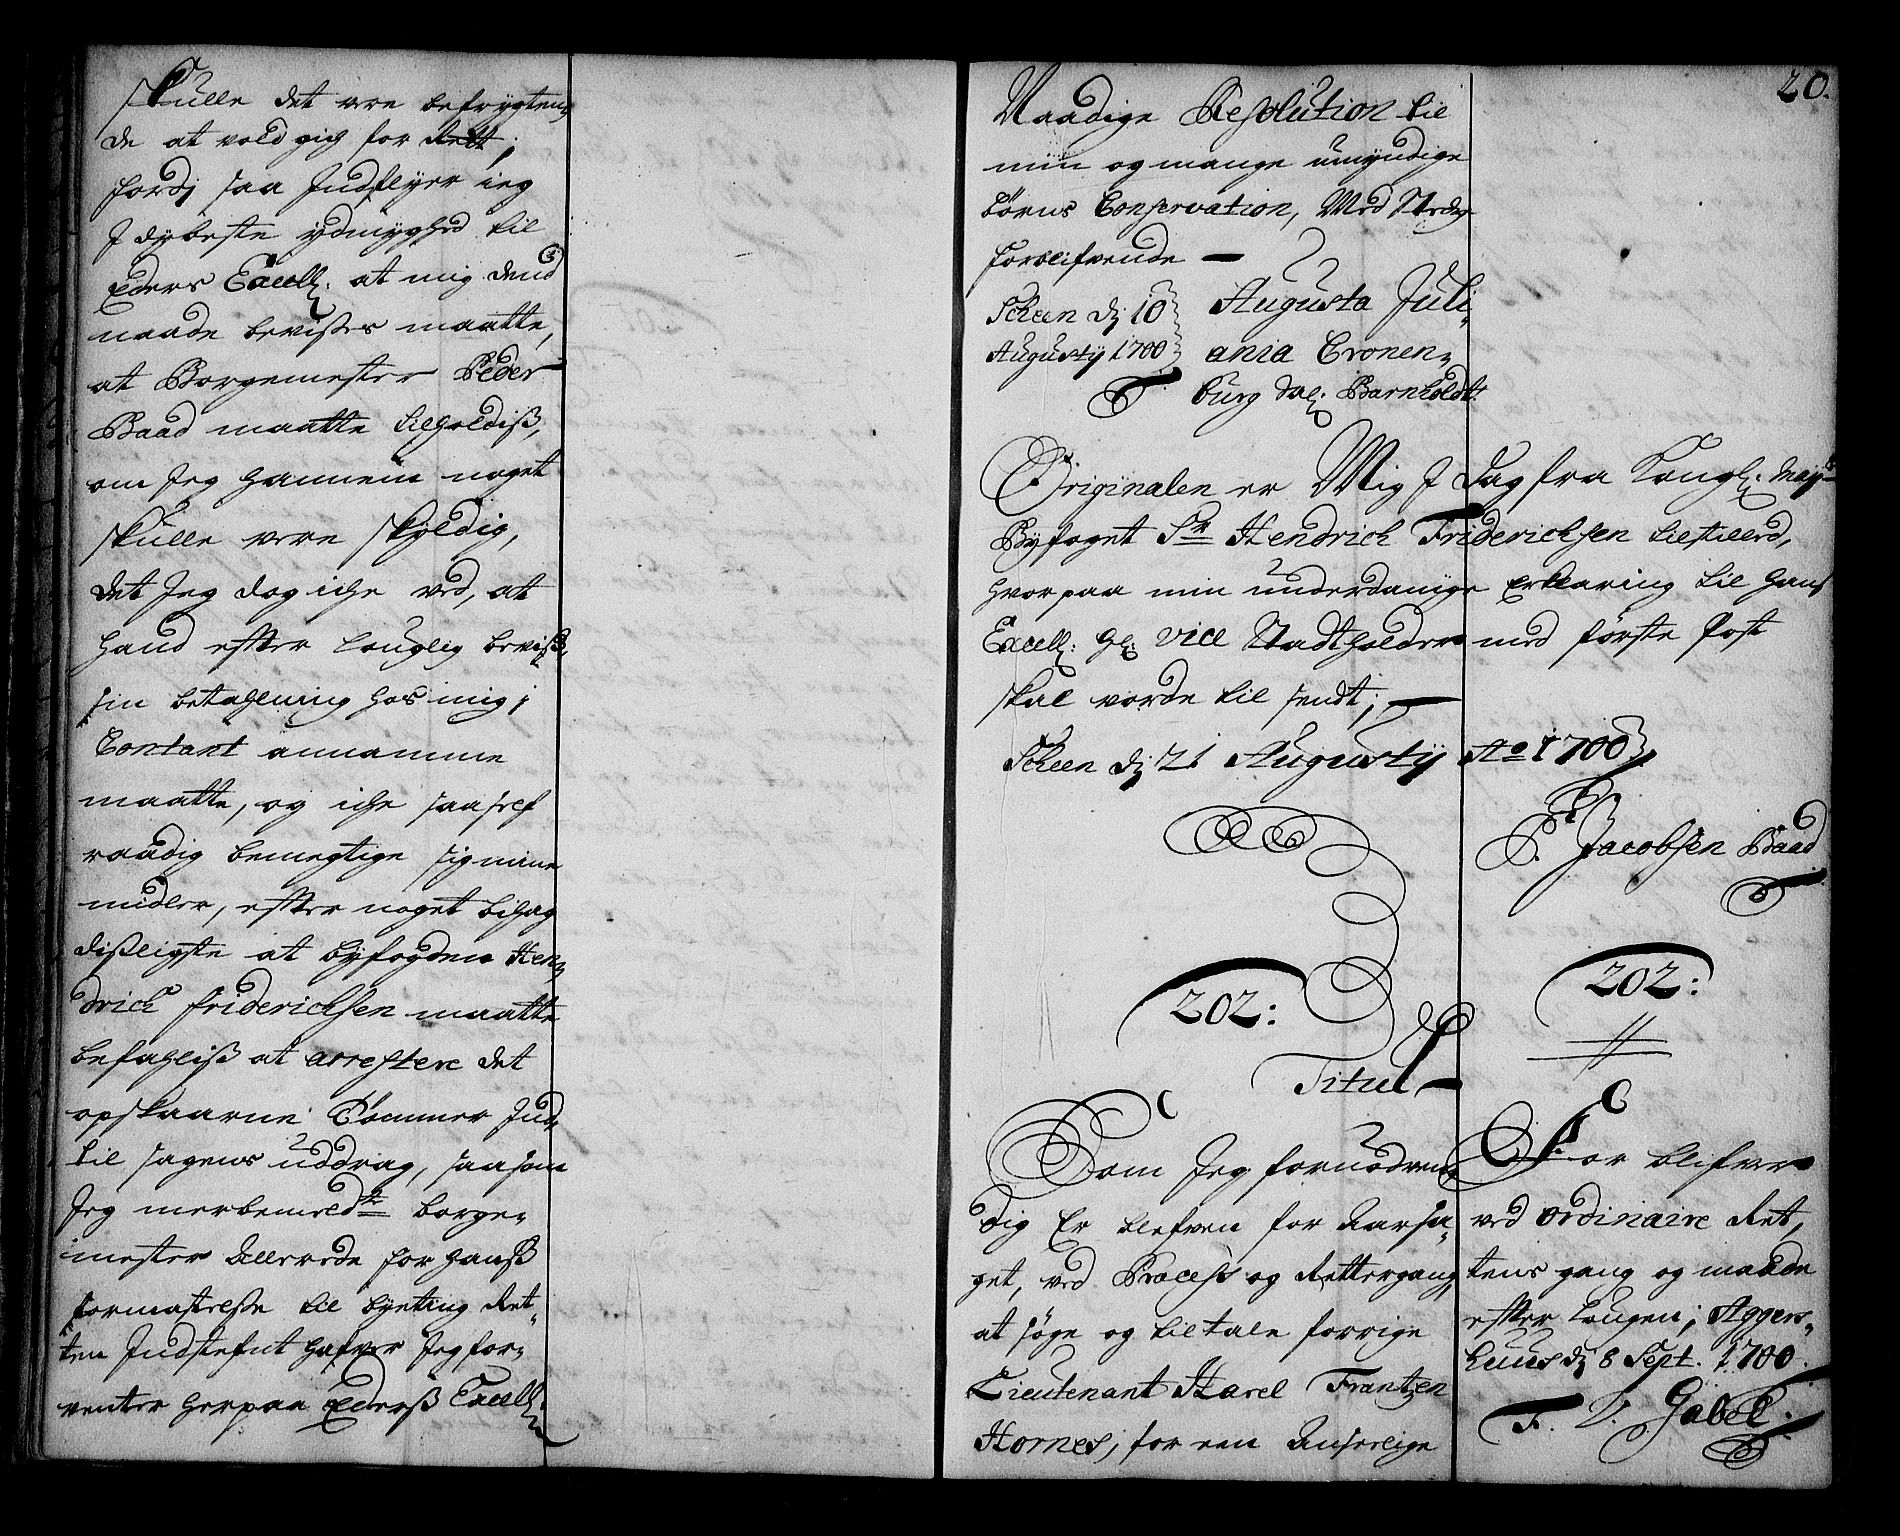 Skulle det vere befrygten,
de at vold gich for Rett,
fordj saa Jndflyer ieg
J dybeste ydmyghed til
Eders Excell: at mig dend
naade bevises maatte,
at Borgemester Peder
Baad maatte tilholdiß,
om Jeg hannem noget
skulle vere skyldig,
det Jeg dog iche ved, at
hand effter louglig beviß,
sin betahlning hos mig,
Contant annamme
maatte, og iche saa self
raadig bemegtige sig mine
midler, effter noget behag
disligste at byfogden Hen,
drich friderichsen maatte
befahliß at arrestere det
opskaarne Tømmer Jnd,
til sagens uddrag, saasom
Jeg merbemeldte borge,
mester allerede for hanß
formastelse til byeting Ret,
ten Jndstefnt hafver Jeg for,
venter herpaa Ederß Excell:
20.
Naadige Resolution til
min og mange umyndige
børns Conservation, Med Stedse
forblifvende —
Scheen dj 10
Augustij 1700
Augusta Juli,
ania Cronen,
burg Sal: Barnholdt
Originalen er Mig J dag fra Kongl: May
Byfoget Sr Hendrich Friderichsen tilstilled,
hvorpaa min underdanige Erklæring til hans
Excell: hr: vice Stadtholder med første post
skal vorde til sendt; —
Scheen dj 21 Augustij Ao 1700
P. Jacobsen Baad
202:
Titul
Som Jeg fornødven
dig Er blefven for aarsa,
get, ved Process og Rettergang,
at søge og tiltale forrige
Lieutenant Karel Frantzen
Hornes, for een Anseelige
202:
For blifver
ved ordinaire Ret,
tens gang og maade
effter Lougen; Aggers,
huus dj 8 Sept. 1700.
F. V. Gabel.